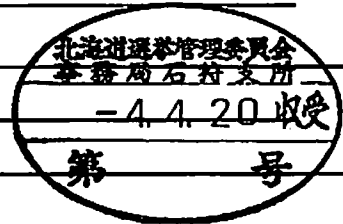 北海道選挙管理委員会
事務局石狩支所
-4.4.20収受
第 号